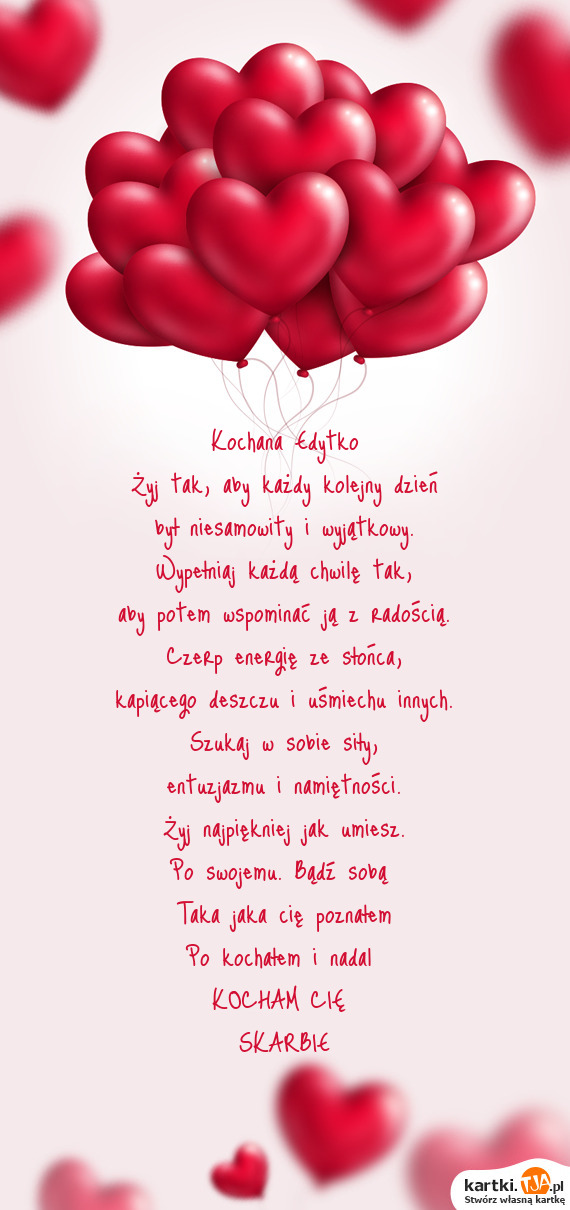 Kochana Edytko
Żyj tak, aby każdy kolejny dzień
był niesamowity i wyjątkowy.
Wypełniaj każdą chwilę tak,
aby potem wspominać ją z radością.
Czerp energię ze słońca,
kapiącego deszczu i uśmiechu innych.
Szukaj w sobie siły,
entuzjazmu i namiętności.
Żyj najpiękniej jak umiesz.
Po swojemu. Bądź sobą
Taka jaka cię poznałem
Po kochałem i nadal
KOCHAM CIĘ
SKARBIE
kartki.TJA.pl
Stwórz własną kartkę